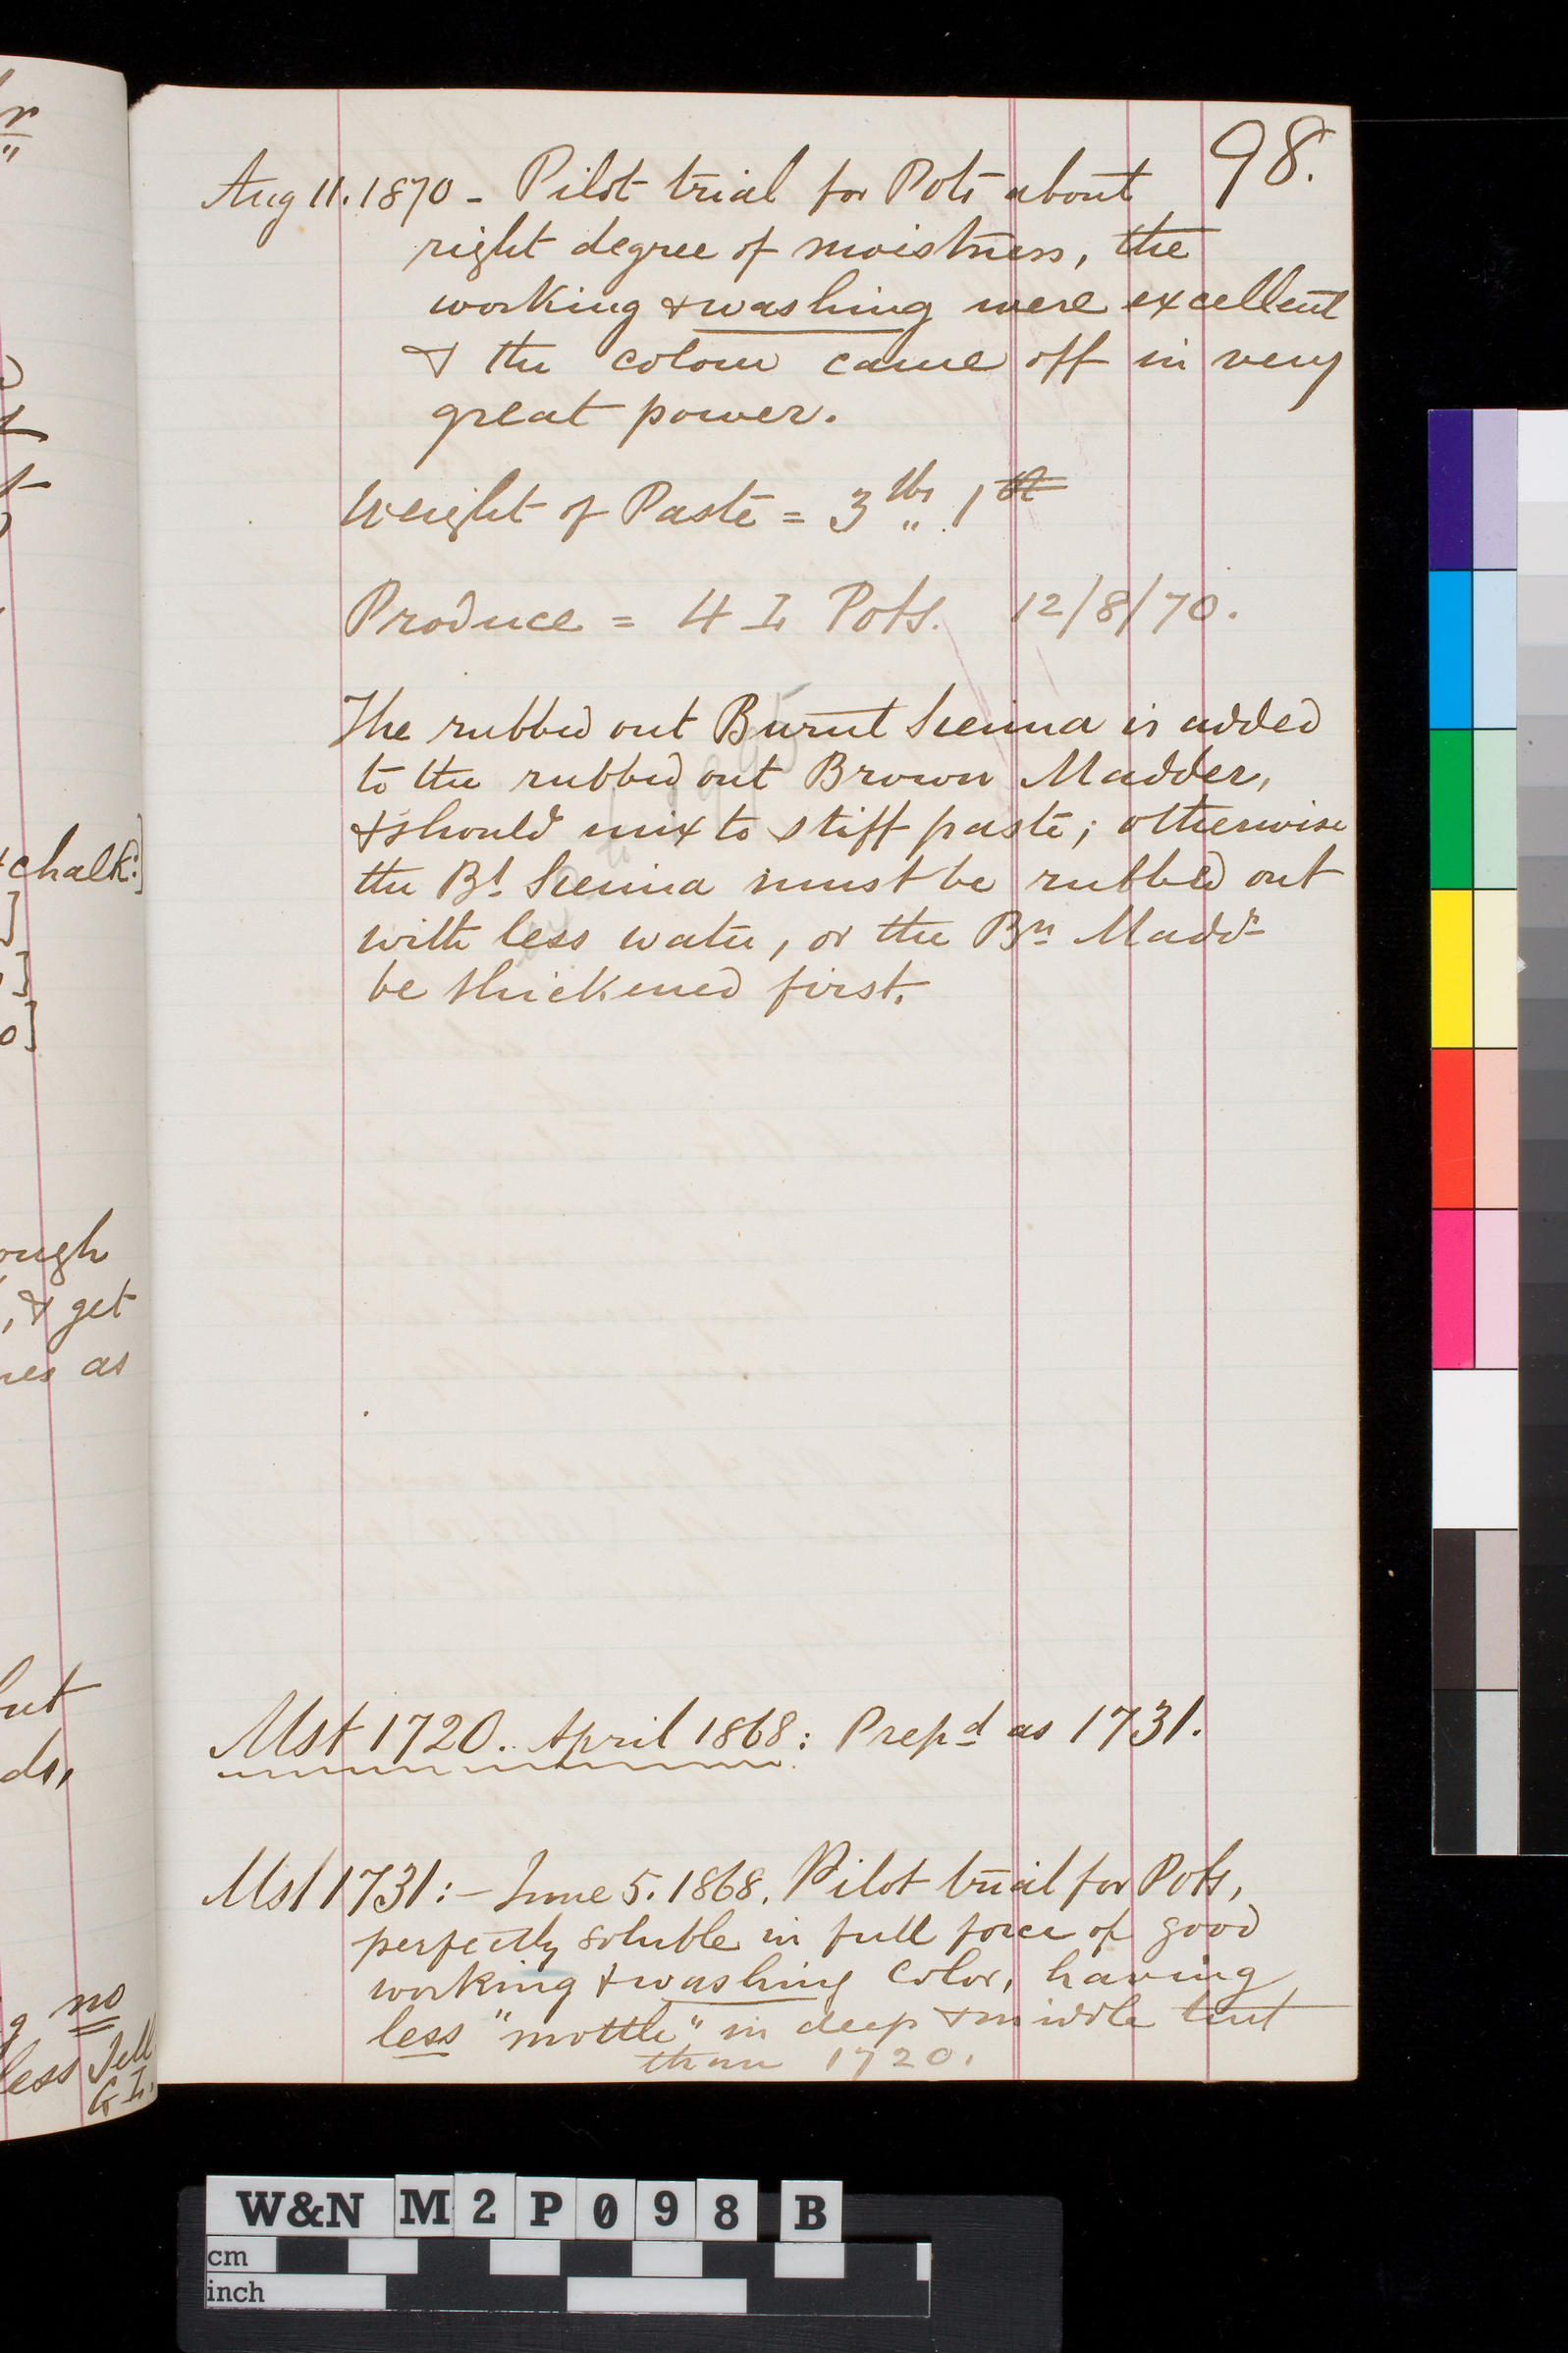 98.
Aug 11. 1870 - Pilot trial for Pots about
right degree of moistness, the
working & washing were excellent
& the colour came off in very
great power.
Weight of Paste = 3 lbs „ 1
Produce = 4 I Pots. 12/8/70.
The rubbed out Burnt Sienna is added
to the rubbed out Brown Madder,
& should mix to stiff paste; otherwise
the Bt. Sienna must be rubbed out
with less water, or the Bn Maddr
be thickened first.
Mst 1720. April 1868: Prepd as 1731.
Mst 1731:- June 5. 1868. Pilot trial for Pots,
perfectly soluble in full force of good
working & washing color, having
less "mottle" in deep & middle tint
than 1720.
r
"
chalk:]
]
]
0]
ough
, & get
res as
but
ds,
g no
less Jell
G I.
W&N M2P098 B
cm
inch